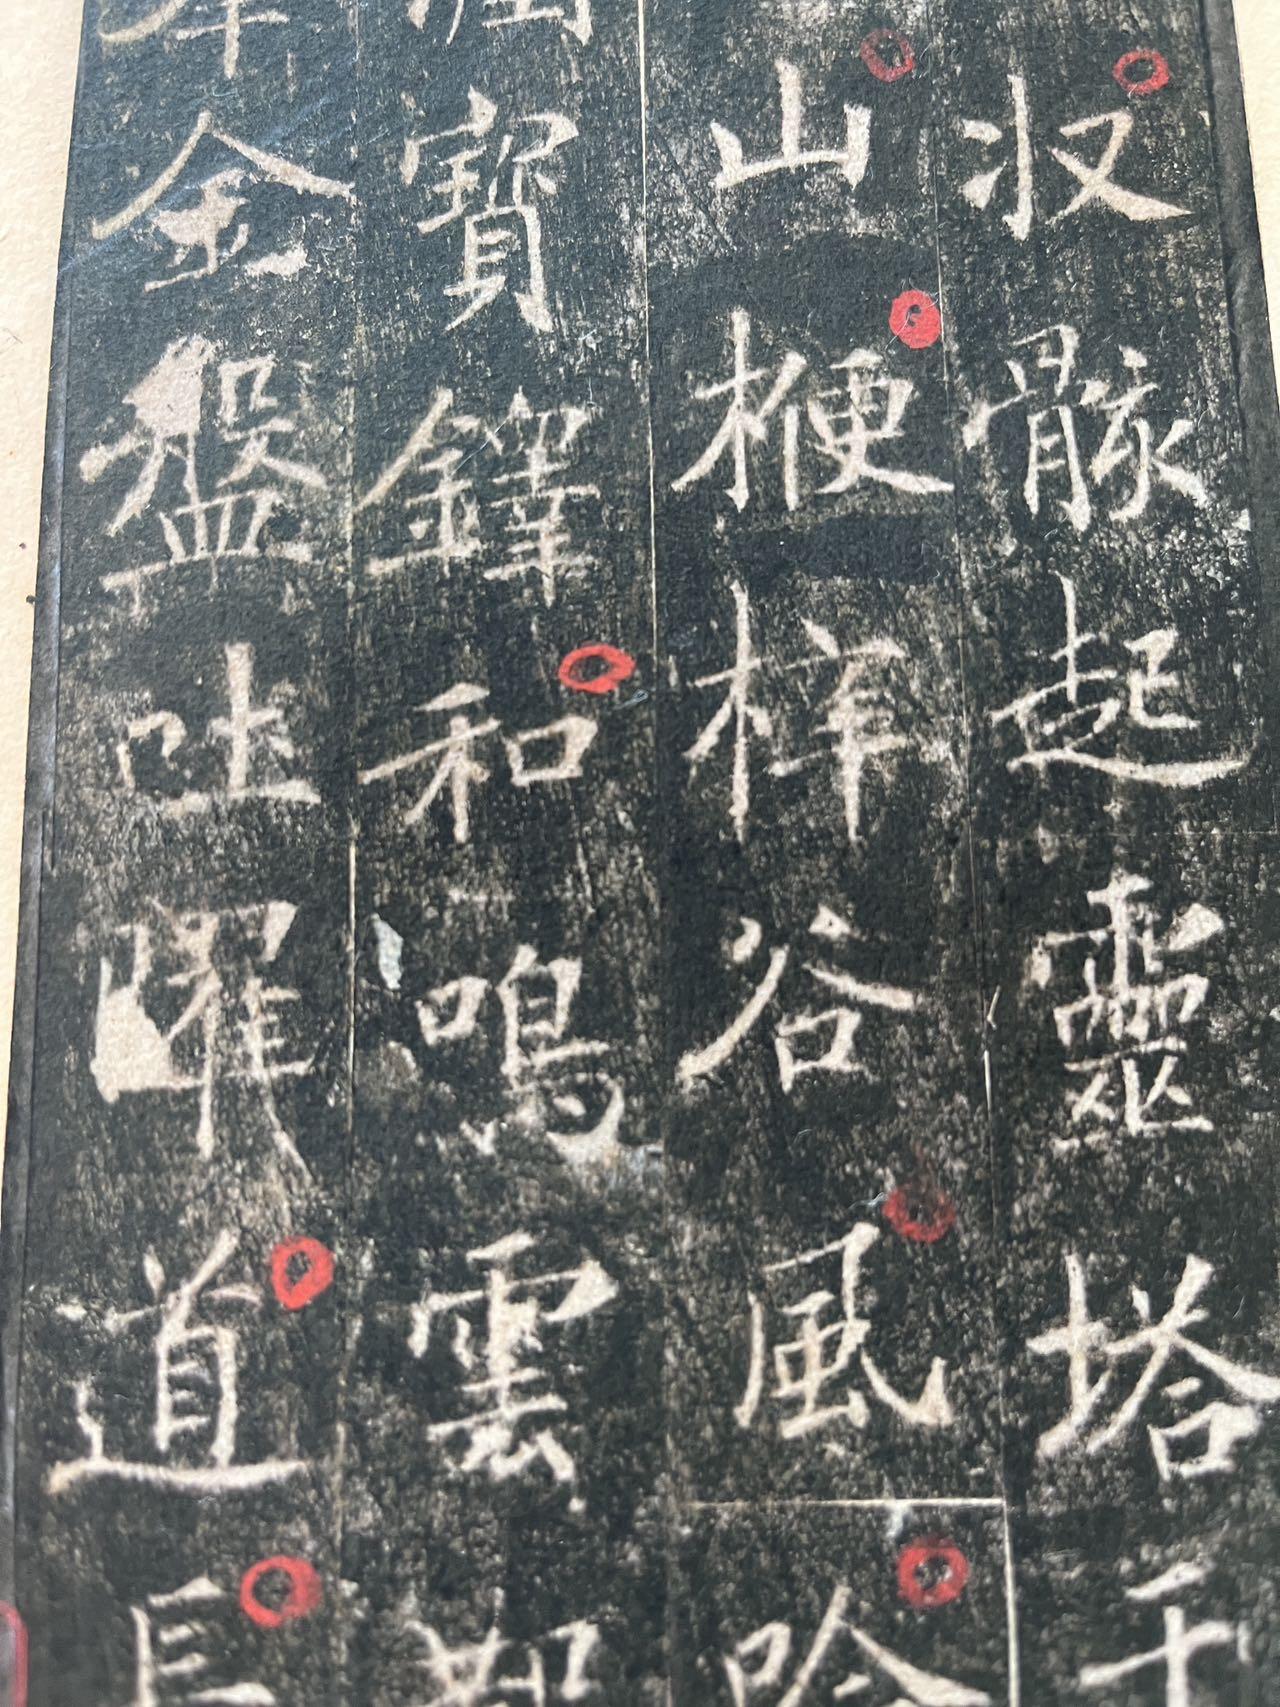 収骸起靈塔
山楩梓谷風吟
寶鐸和鳴雲
金盤吐曜道長